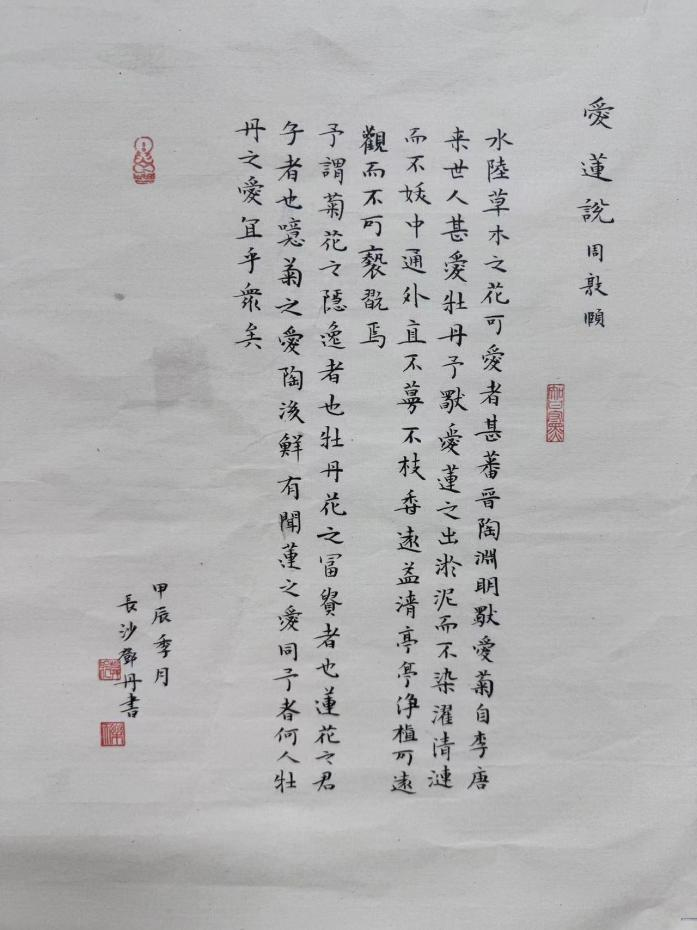 愛蓮說 周敦頤
水陸草木之花可愛者甚蕃晉陶淵明獸愛菊自李唐
来世人甚愛牡丹予獸愛蓮之出淤泥而不染濯清漣
而不妖中通外直不蔓不枝香遠益清亭亭浄植可遠
觀而不可褻翫焉
予謂菊花之隱逸者也牡丹花之冨貴者也蓮花之君
子者也噫菊之愛陶後鮮有聞蓮之愛同予者何人牡
丹之愛宜乎衆矣
甲辰季月
長沙鄧丹書